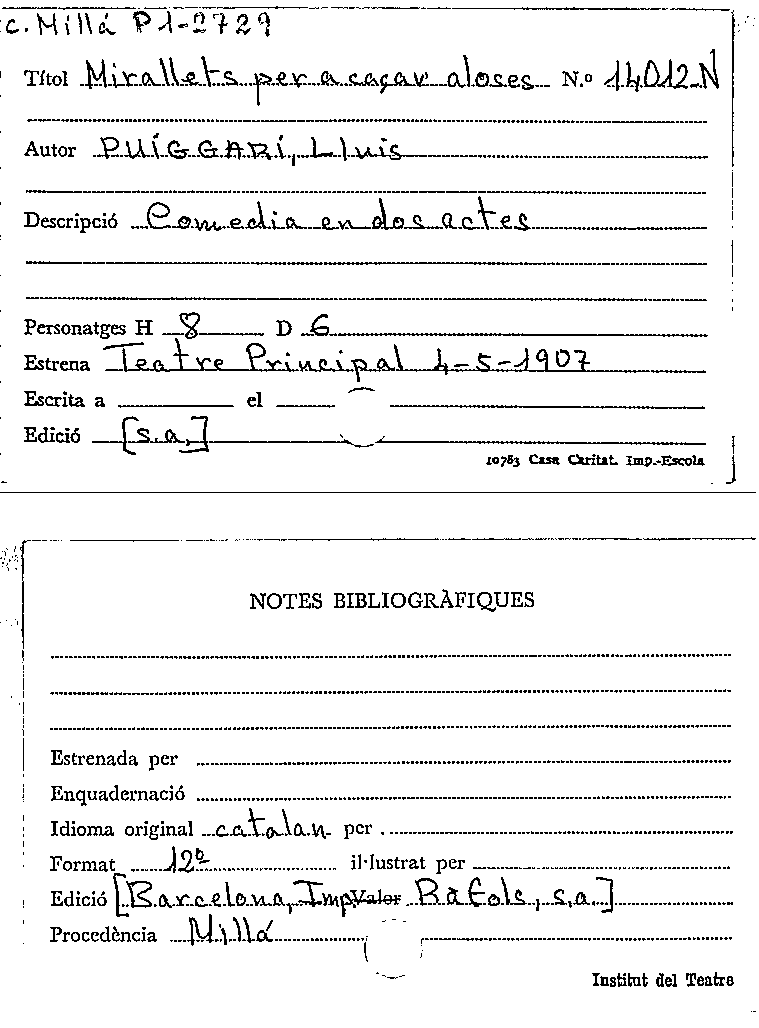 c. Millá P1-2729
Títol Mirallets per a caçar aloses N.º 14012-N
Autor PUÍGGARÍ, Lluis
Descripció Comedia en dos actes
Personatges H 8 D 6
Estrena Teatre Principal 4-5-1907
Escrita a el
Edició [s.a.]
10763 Casa Caritat. Imp.-Escola
NOTES BIBLIOGRÀFIQUES
Estrenada per
Enquadernació
Idioma original catalan per
Format 12º il·lustrat per
Edició [Barcelona, Imp Valor Ràfols, s.a.]
Procedència Millá
Institut del Teatre